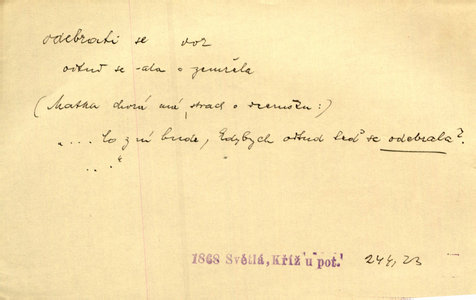 odebrati se vor
odtud se -ala = zemřela
(Matka chorá má strach o dcerušku:)
"... Co z ní bude, kdybych odtud teď se odebrala?
..."
1868 Světlá, Kříž u pot. 244, 23